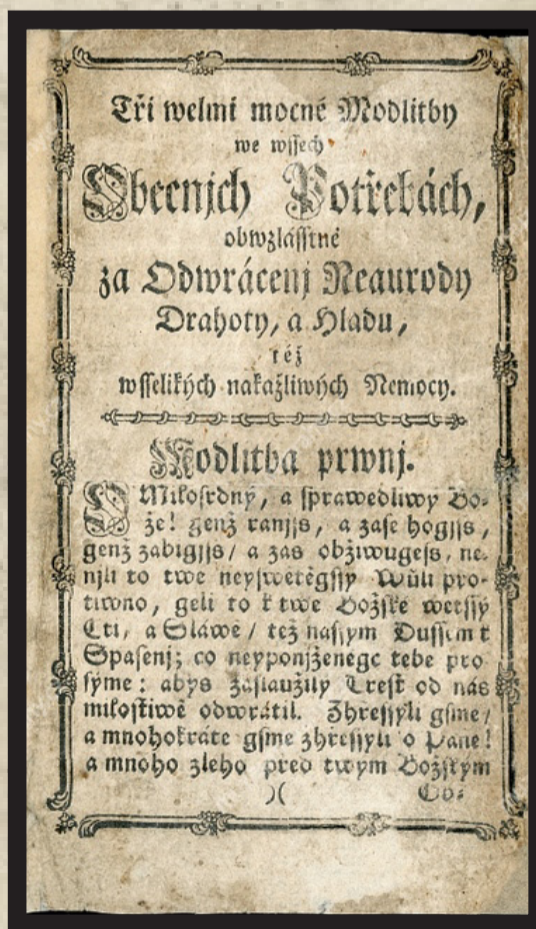 Tři welmi mocné Modlitby
we wssech
Obecnjch Potřebách,
obwzlásstně
za Odwrácenj Neaurody
Drahoty, a Hladu,
též
wsselikých nakažliwých Nemocy.
Modlitba prwnj.
O Milosrdný, a sprawedliwý Bo-
že! genž ranjjs, a zase hogjjs,
genž zabigjjs / a zas obžiwugess, ne-
njli to twe neyswetěgssy Wůli pro-
tiwno, geli to k twe Božské wetssý
Cti, a Sláwe / též nassym Dussem k
Spasenj; co neyponjženegc tebe pro
syme: abys zaslaužilý Trest od nás
milostiwě odwrátil. Zhressyli gsme /
a mnohokráte gsme zhressyli o Pane!
a mnoho zleho pred twym Božským
)( Ob-